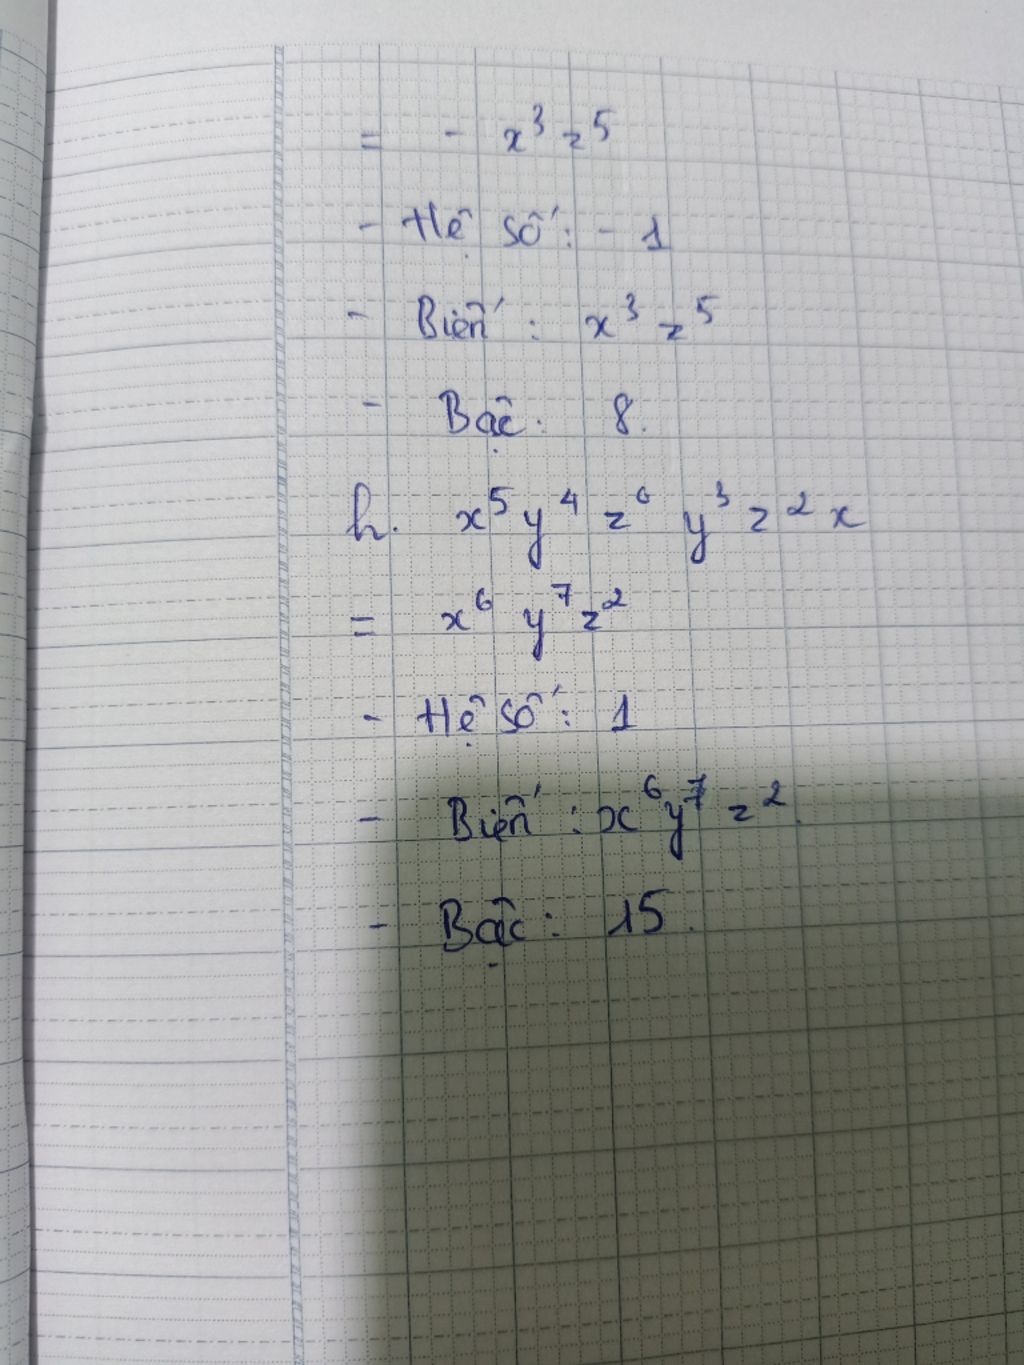 = - x³ z⁵
- Hệ số: - 1
- Biến: x³ z⁵
- Bậc: 8.
h. x⁵ y⁴ z⁰ y³ z² x
= x⁶ y⁷ z²
- Hệ số: 1
- Biến: x⁶ y⁷ z².
- Bậc: 15.